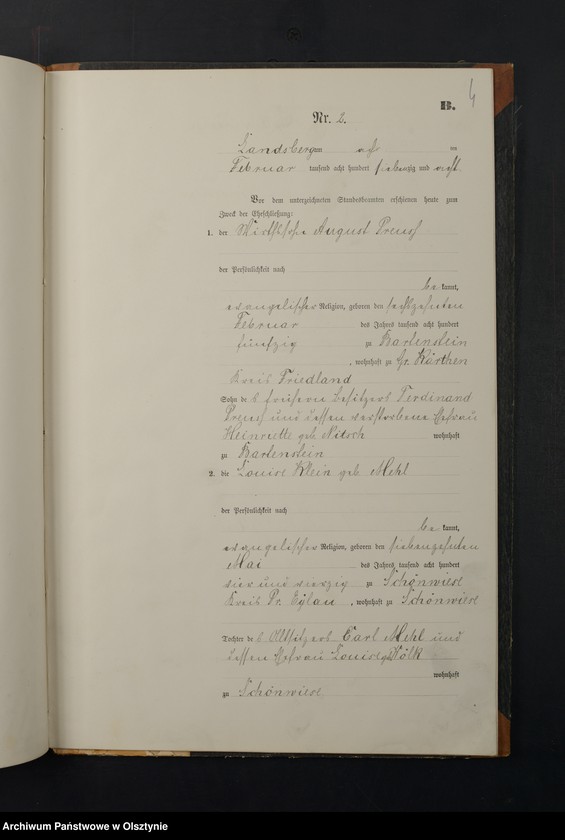 B.
4
Nr. 2.
Landsberg am acht ten
Februar tausend acht hundert siebenzig und acht
Vor dem unterzeichneten Standesbeamten erschienen heute zum
Zweck der Eheschließung:
1. der Wirthssohn August Preuß
der Persönlichkeit nach
be kannt,
evangelischer Religion, geboren den sechszehnten
Februar des Jahres tausend acht hundert
fünfzig zu Bartenstein
, wohnhaft zu Gr. Kärthen
Kreis Friedland
Sohn des früheren Besitzers Ferdinand
Preuß und dessen verstorbene Ehefrau
Heinriette geb. Nitsch wohnhaft
zu Bartenstein
2. die Louise Klein geb. Mehl
der Persönlichkeit nach
be kannt,
evangelischer Religion, geboren den siebenzehnten
Mai des Jahres tausend acht hundert
vier und vierzig zu Schönwiese
Kreis Pr. Eylau , wohnhaft zu Schönwiese
Tochter des Altsitzers Carl Mehl und
dessen Ehefrau Louise
wohnhaft
zu Schönwiese
Archiwum Państwowe w Olsztynie